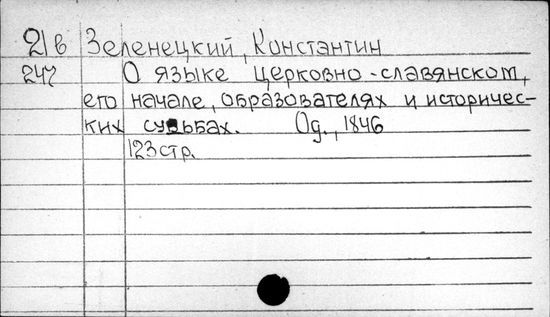 21в Зеленецкий, Константин
247 О языке церковно-славянском,
его начале, образователях и историчес-
ких судьбах. Од., 1846
123 стр.